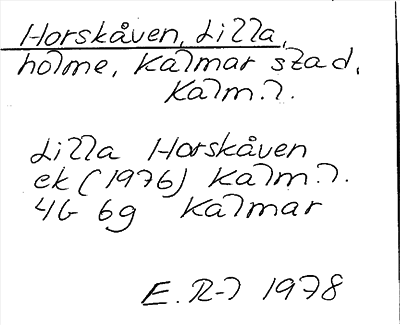 Horskåven, Lilla,
holme, Kalmar stad,
Kalm.l.
Lilla Horskåven
ek (1976) Kalm.l.
4G 6g Kalmar
E. R-l 1978